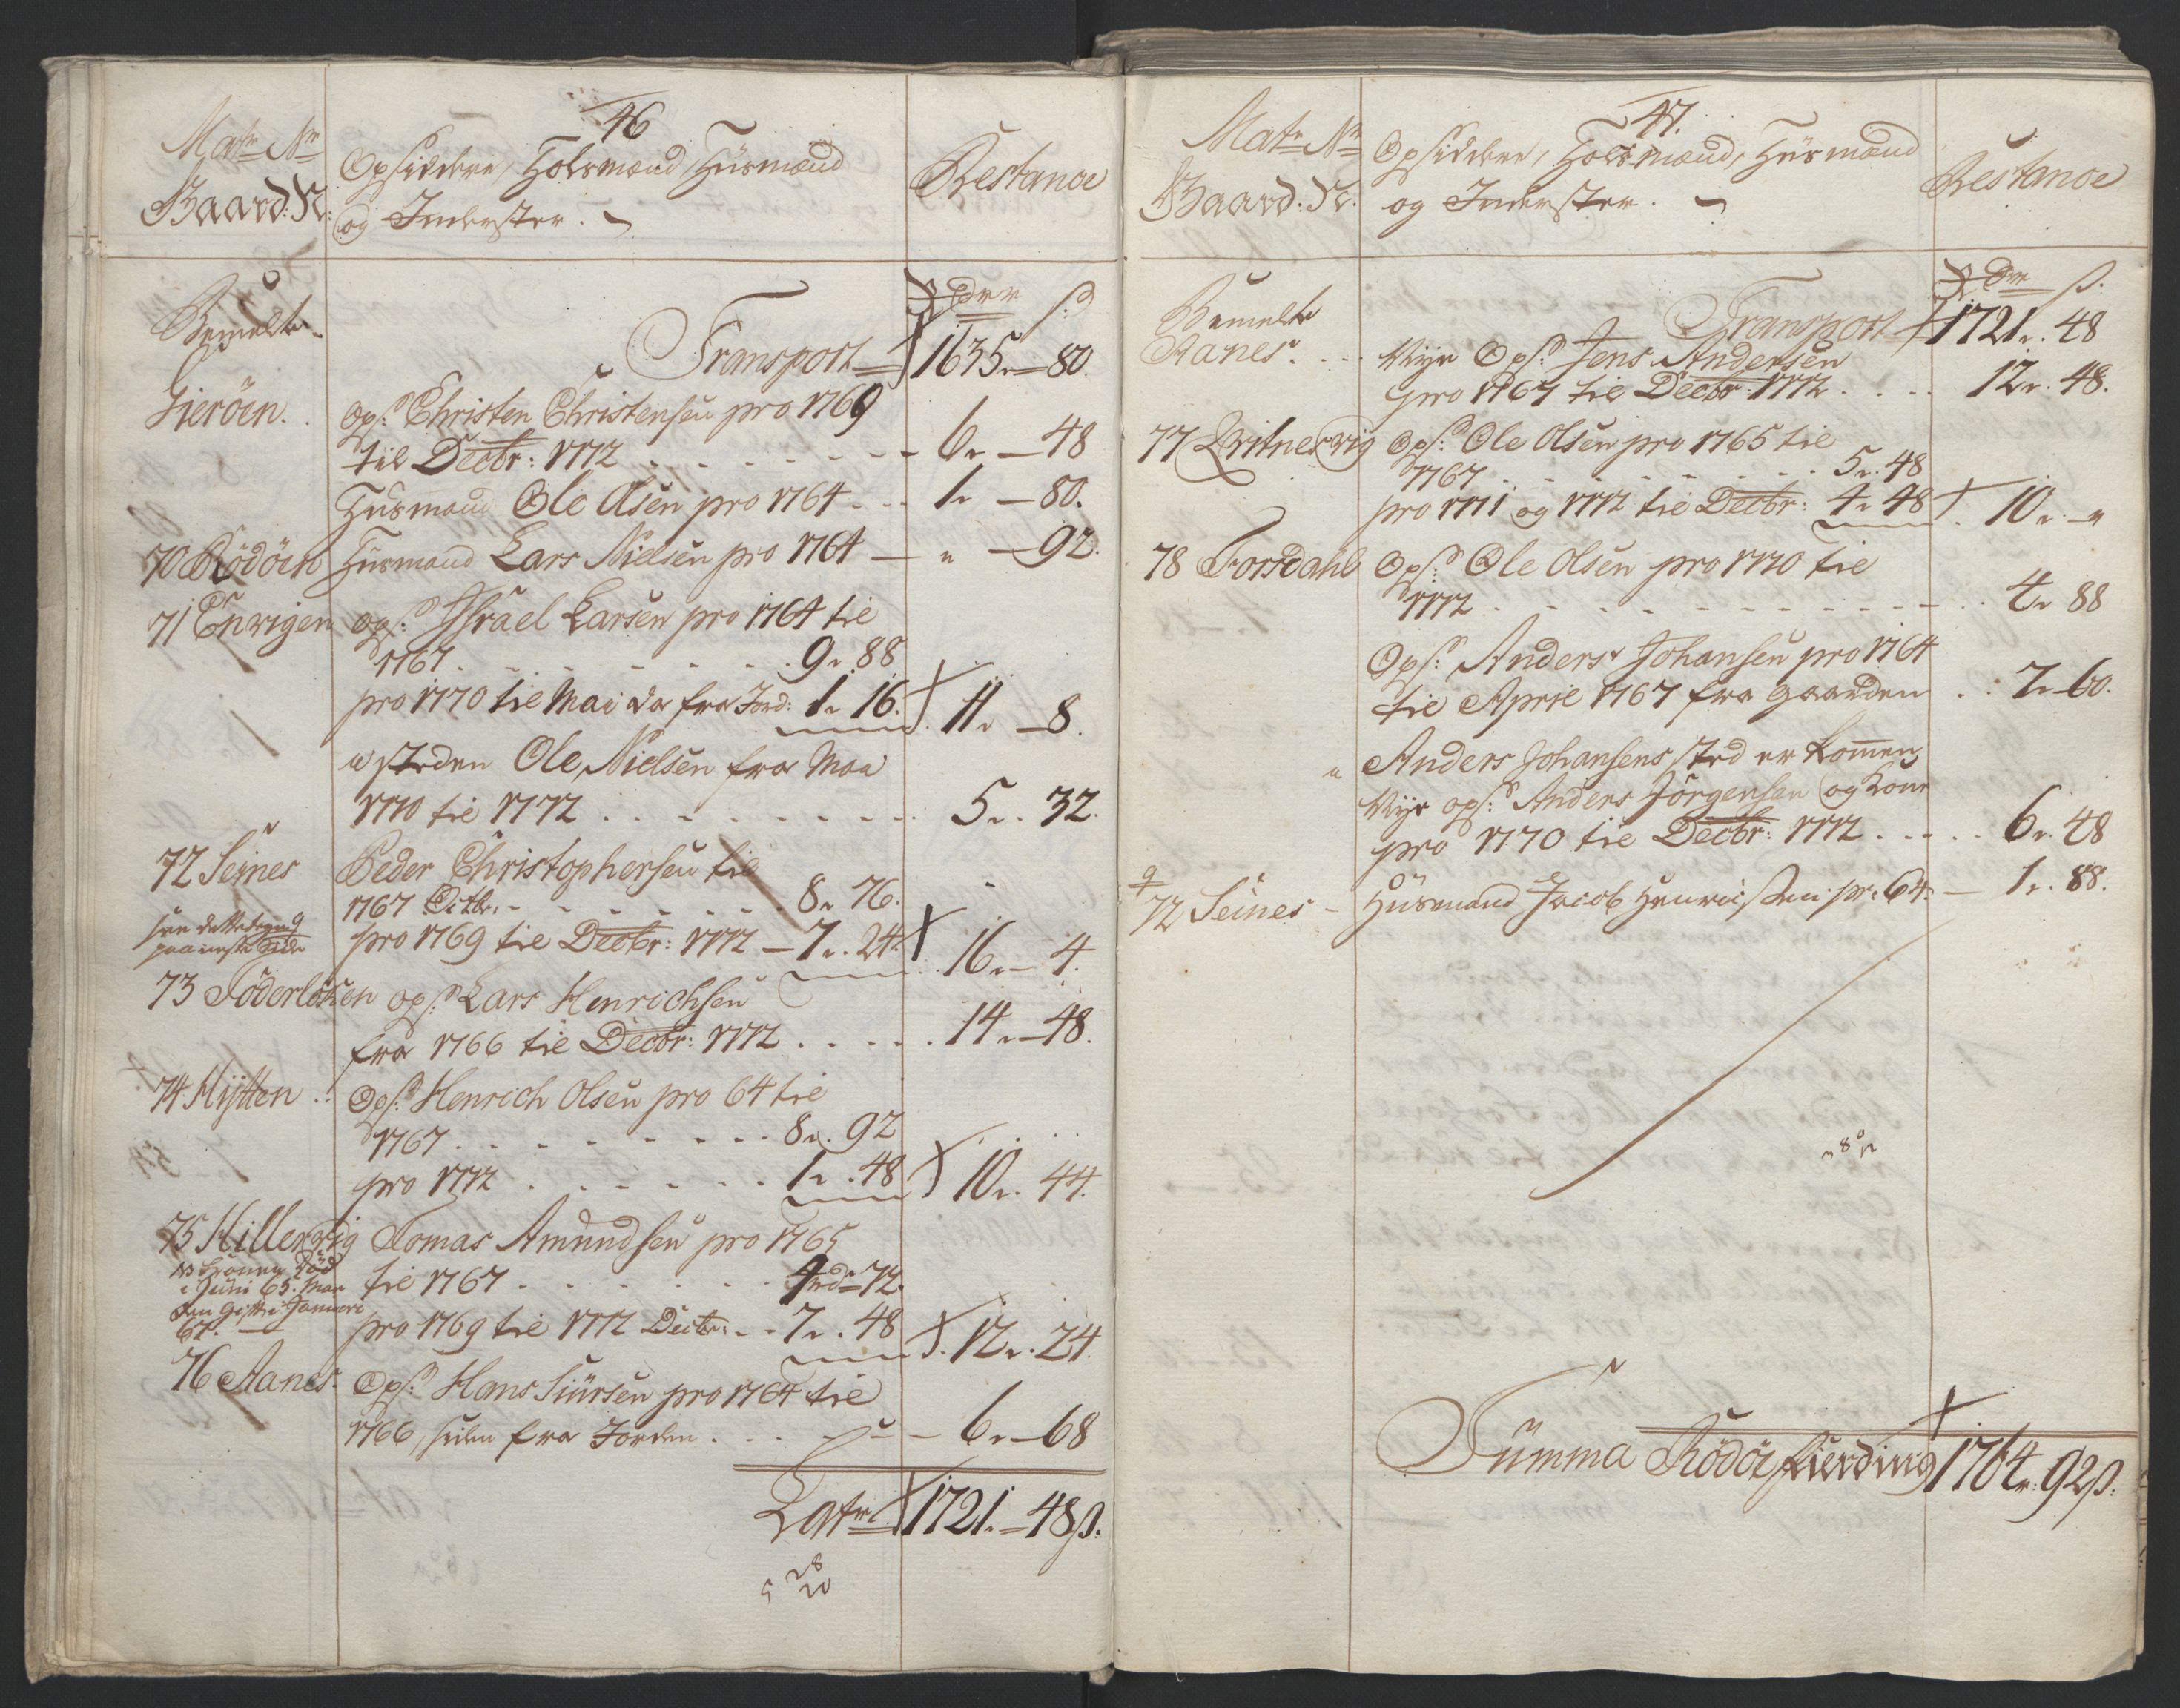 46
Matr Nr
Gaard: N:
Opsiddere, Holsmænd, Huusmænd
og Inderster.
Restance
Bemelte
Rdr ß
Transport 1635 - 80.
Gieröen.
Ops: Christen Christensen pro 1769
til Decbr: 1772 - 6 - 48
Huusmand Ole Olsen pro 1764 - 1 - 80.
70 Rödöen Huusmand Lars Nielsen pro 1764 - " - 92.
71 Enwigen Ops: Jsrael Larsen pro 1764 til
1767 - 9. 88
pro 1770 til Mai da fra Jord: 1. 16. 11 - 8.
i steden Ole Nielsen fra Mai
1770 til 1772 - 5. 32.
72 Seines Peder Christophersen til
1767 Decbr: - 8. 76.
see dette
paa neste Side
pro 1769 til Decbr: 1772 - 7. 24. 16 - 4.
73 Söderlöcken ops: Lars Henrichsen
fra 1766 til Decbr: 1772 . . . . 14 - 48.
74 Hijtten Ops: Henrich Olsen pro 64 til
1767 - 8. 92
pro 1772 - 1. 48 10. 44.
75 Hillerwig Tomas Amundsen pro 1765
NB Konen Död
i Juni 65. Man
den gift i Januari
67.
til 1767 - 4rd 72.
pro 1769 til 1772 Decbr: - 7. 48 12. 24.
76 Aanes. Ops: Hans Siursen pro 1764 til
1766, siden fra Jorden . . . 6 - 68
Latr 1721. - 48 ß.
47.
Matr Nr
Gaard: N:
Opsiddere, Holsmænd, Huusmænd
og Inderster.
Restance
Rdr ß.
Bemelte
Transport 1721. 48
Aanes. . . . Nye Ops: Jens Andersen
pro 1767 til Decbr 1772 . . . . 12. 48.
77 Qvitneswig Ops: Ole Olsen pro 1765 til
1767 - 5. 48
pro 1771 og 1772 til Decbr: 4. 48 10. - "
78 Forsdahl Ops: Ole Olsen pro 1770 til
1772 - 4. 88
Ops: Anders Johansen pro 1764
til April 1767 fra gaarden . . 7 - 60.
" Anders Johansens sted er kommen
Nye ops: Anders Jörgensen og Kone
pro 1770 til Decbr: 1772 . . . . 6. 48
72 Seines - Huusmand Jacob Henrichsen pr: 64. - 1. 88.
Summa Rödöe Fierding 1764. 92 ß.